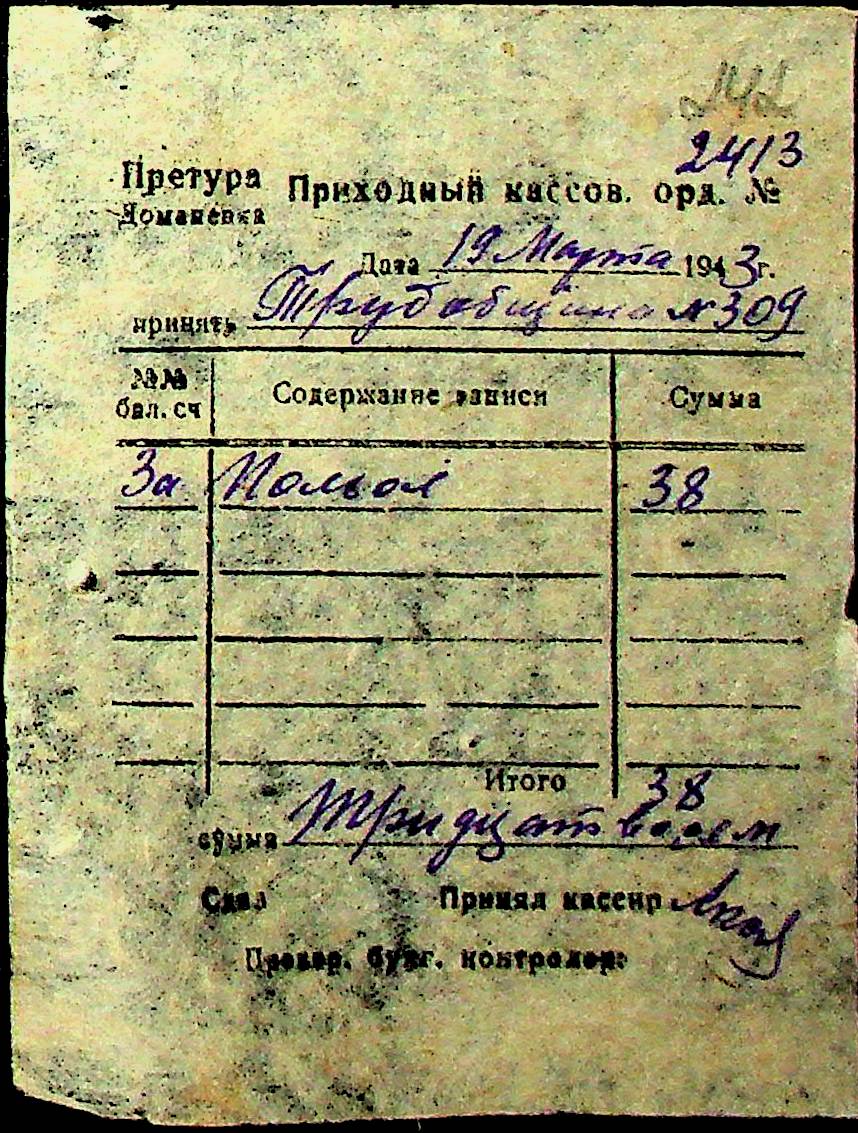 2413
Претура Приходный кассов. орд. №
Доманевка
Дата 19 Марта 1943г.
принять Трудобщина №309
№№ бал. сч Содержание записи Сумма
За 38
Итого 38
сумма Тридцат восем
Сдал Принял кассир
Провер. бухг. контролер: